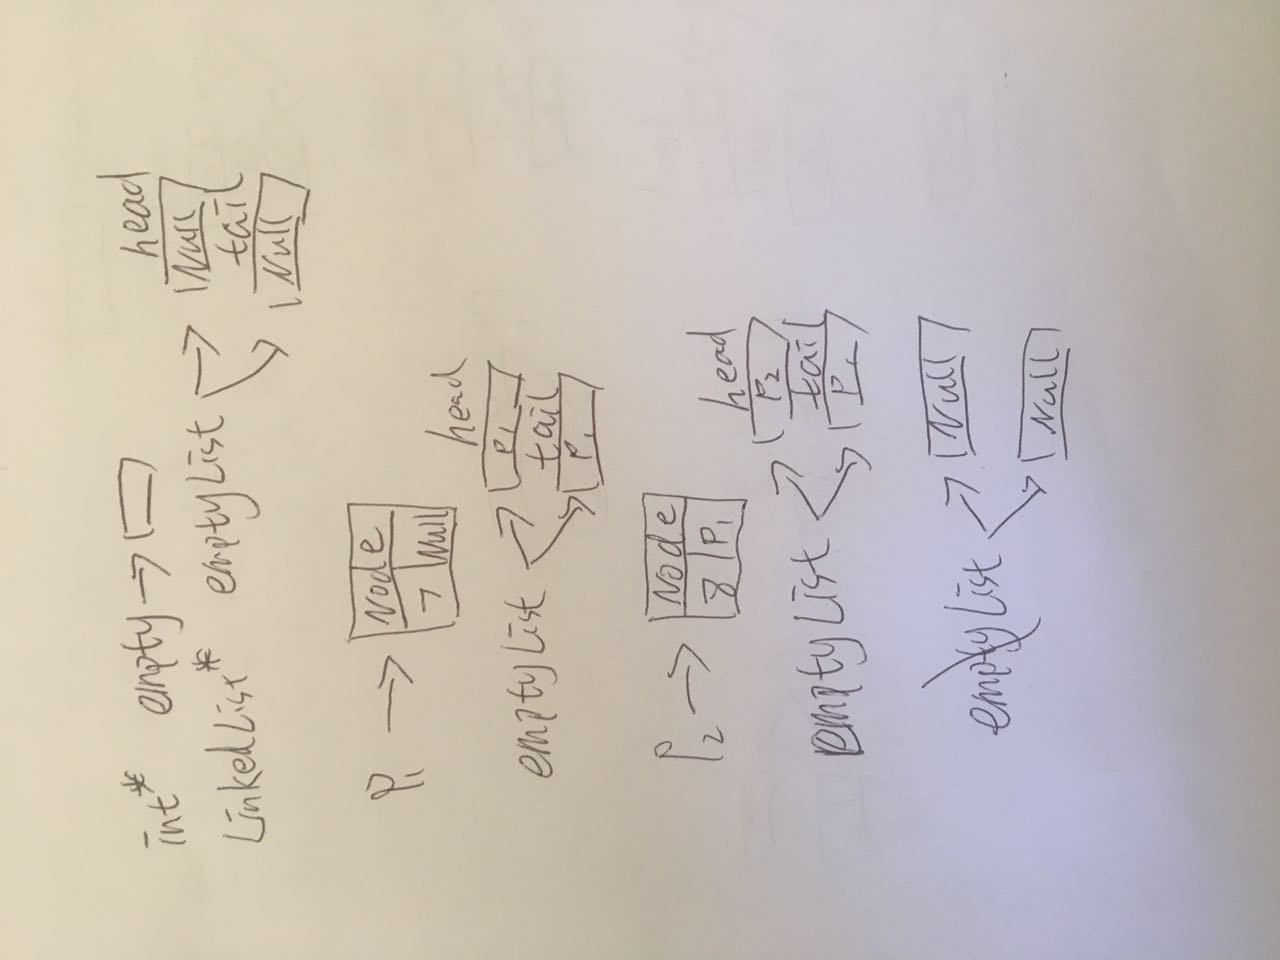 int* empty → head
LinkedList* emptyList Null
tail
Null
P1 → Node
7 Null
head
emptyList P1
tail
P1
P2 → Node
8 P1
head
emptyList P2
tail
P1
emptyList Null
Null